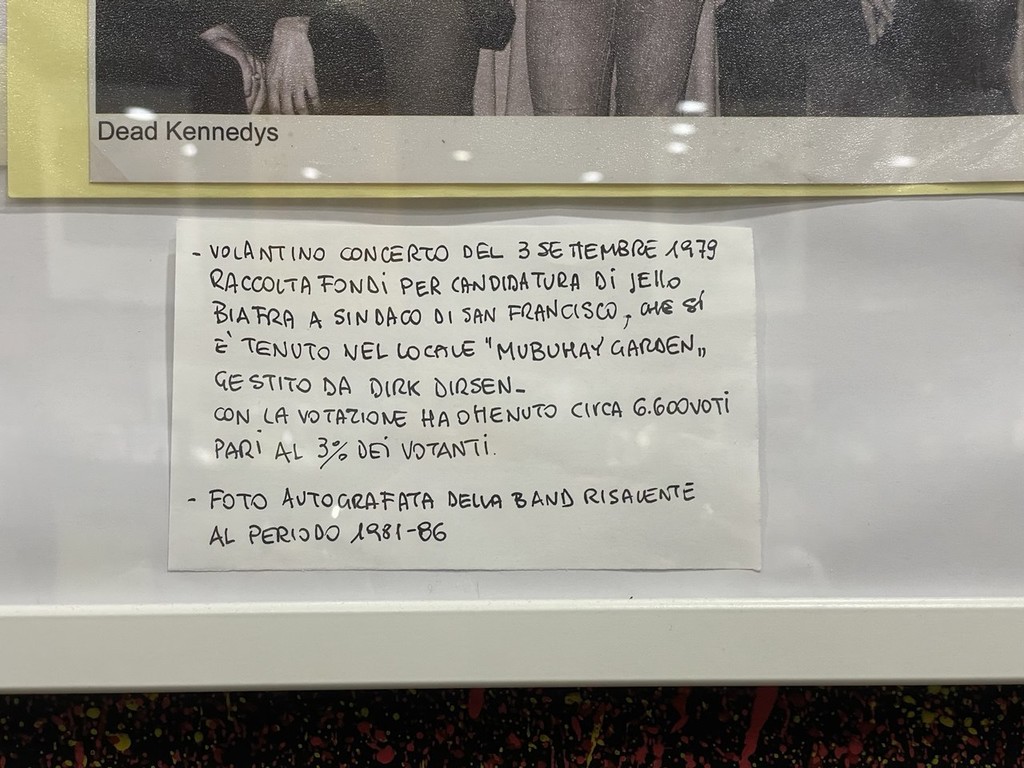 Dead Kennedys
- VOLANTINO CONCERTO DEL 3 SETTEMBRE 1979
RACCOLTA FONDI PER CANDIDATURA DI JELLO
BIAFRA A SINDACO DI SAN FRANCISCO, CHE SI
È TENUTO NEL LOCALE "MUBUHAY GARDEN"
GESTITO DA DIRK DIRSEN-
CON LA VOTAZIONE HA OTTENUTO CIRCA 6.600 VOTI
PARI AL 3% DEI VOTANTI.
- FOTO AUTOGRAFATA DELLA BAND RISALENTE
AL PERIODO 1981-86